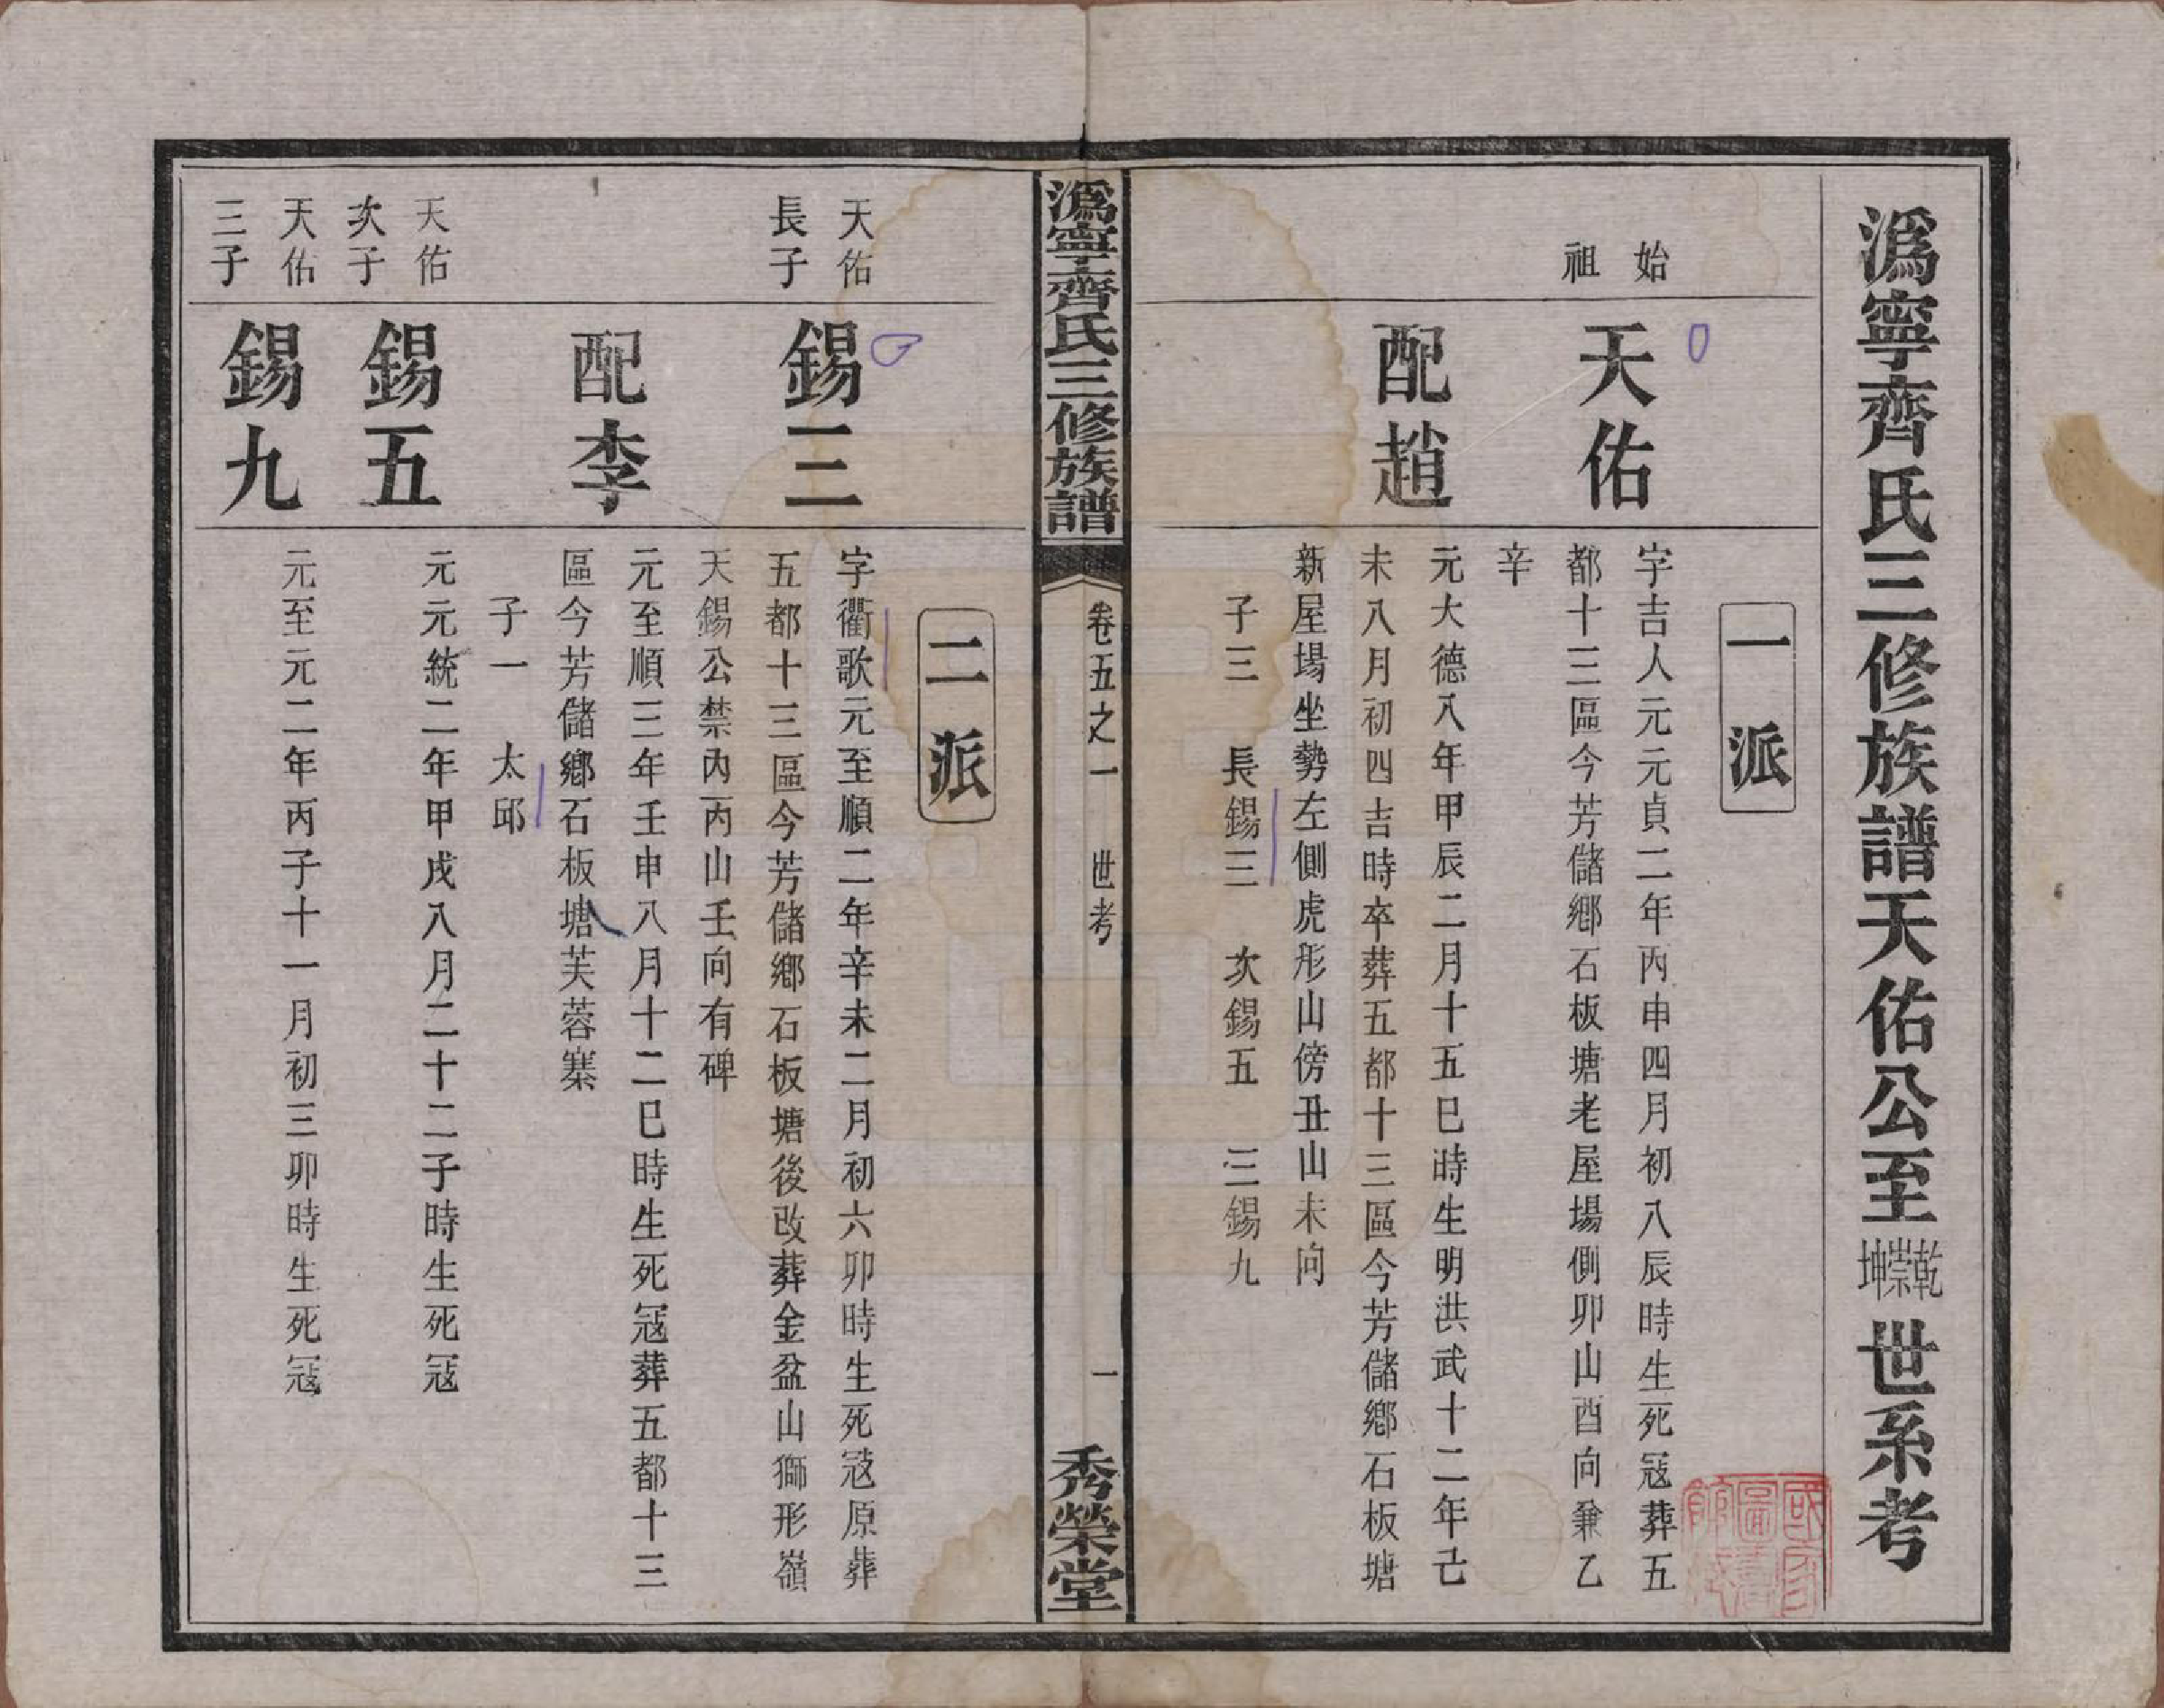 溈寧齊氏三修族譜天佑公至乾崇坤世系考
一派
始
祖
天佑
字吉人元元貞二年丙申四月初八辰時生死寇葬五
都十三區今芳儲鄉石板塘老屋場側卯山酉向兼乙
辛
配趙
元大德八年甲辰二月十五巳時生明洪武十二年己
未八月初四吉時卒葬五都十三區今芳儲鄉石板塘
新屋場坐勢左側虎形山傍丑山未向
子三 長錫三 次錫五 三錫九
溈寧齊氏三修族譜 卷五之一 世考 一 秀榮堂
二派
天佑
長子
錫三
字衢歌元至順二年辛未二月初六卯時生死寇原葬
五都十三區今芳儲鄉石板塘後改葬金盆山獅形嶺
天錫公禁內丙山壬向有碑
配李
元至順三年壬申八月十二巳時生死寇葬五都十三
區今芳儲鄉石板塘芙蓉寨
子一 太邱
天佑
次子
錫五
元元統二年甲戌八月二十二子時生死寇
天佑
三子
錫九
元至元二年丙子十一月初三卯時生死寇